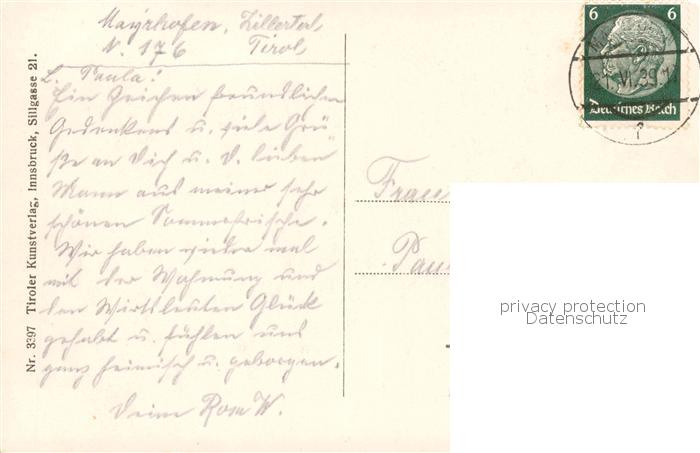 Mayrhofen, Zillertal
N. 176 Tirol
L. Paula!
Ein Zeichen freundlichen
Gedenkens u. viele Grü-
ße an Dich u. D. lieben
Mann aus meiner sehr
schönen Sommerfrische.
Wir haben wieder mal
mit der Wohnung und
den Wirtsleuten Glück
gehabt u. fühlen uns
ganz heimisch u. geborgen.
Deine Rosa W.
Nr. 3397 Tiroler Kunstverlag, Innsbruck, Sillgasse 21.
6 6
Deutsches Reich
VI. 39
Frau
Pau
privacy protection
Datenschutz